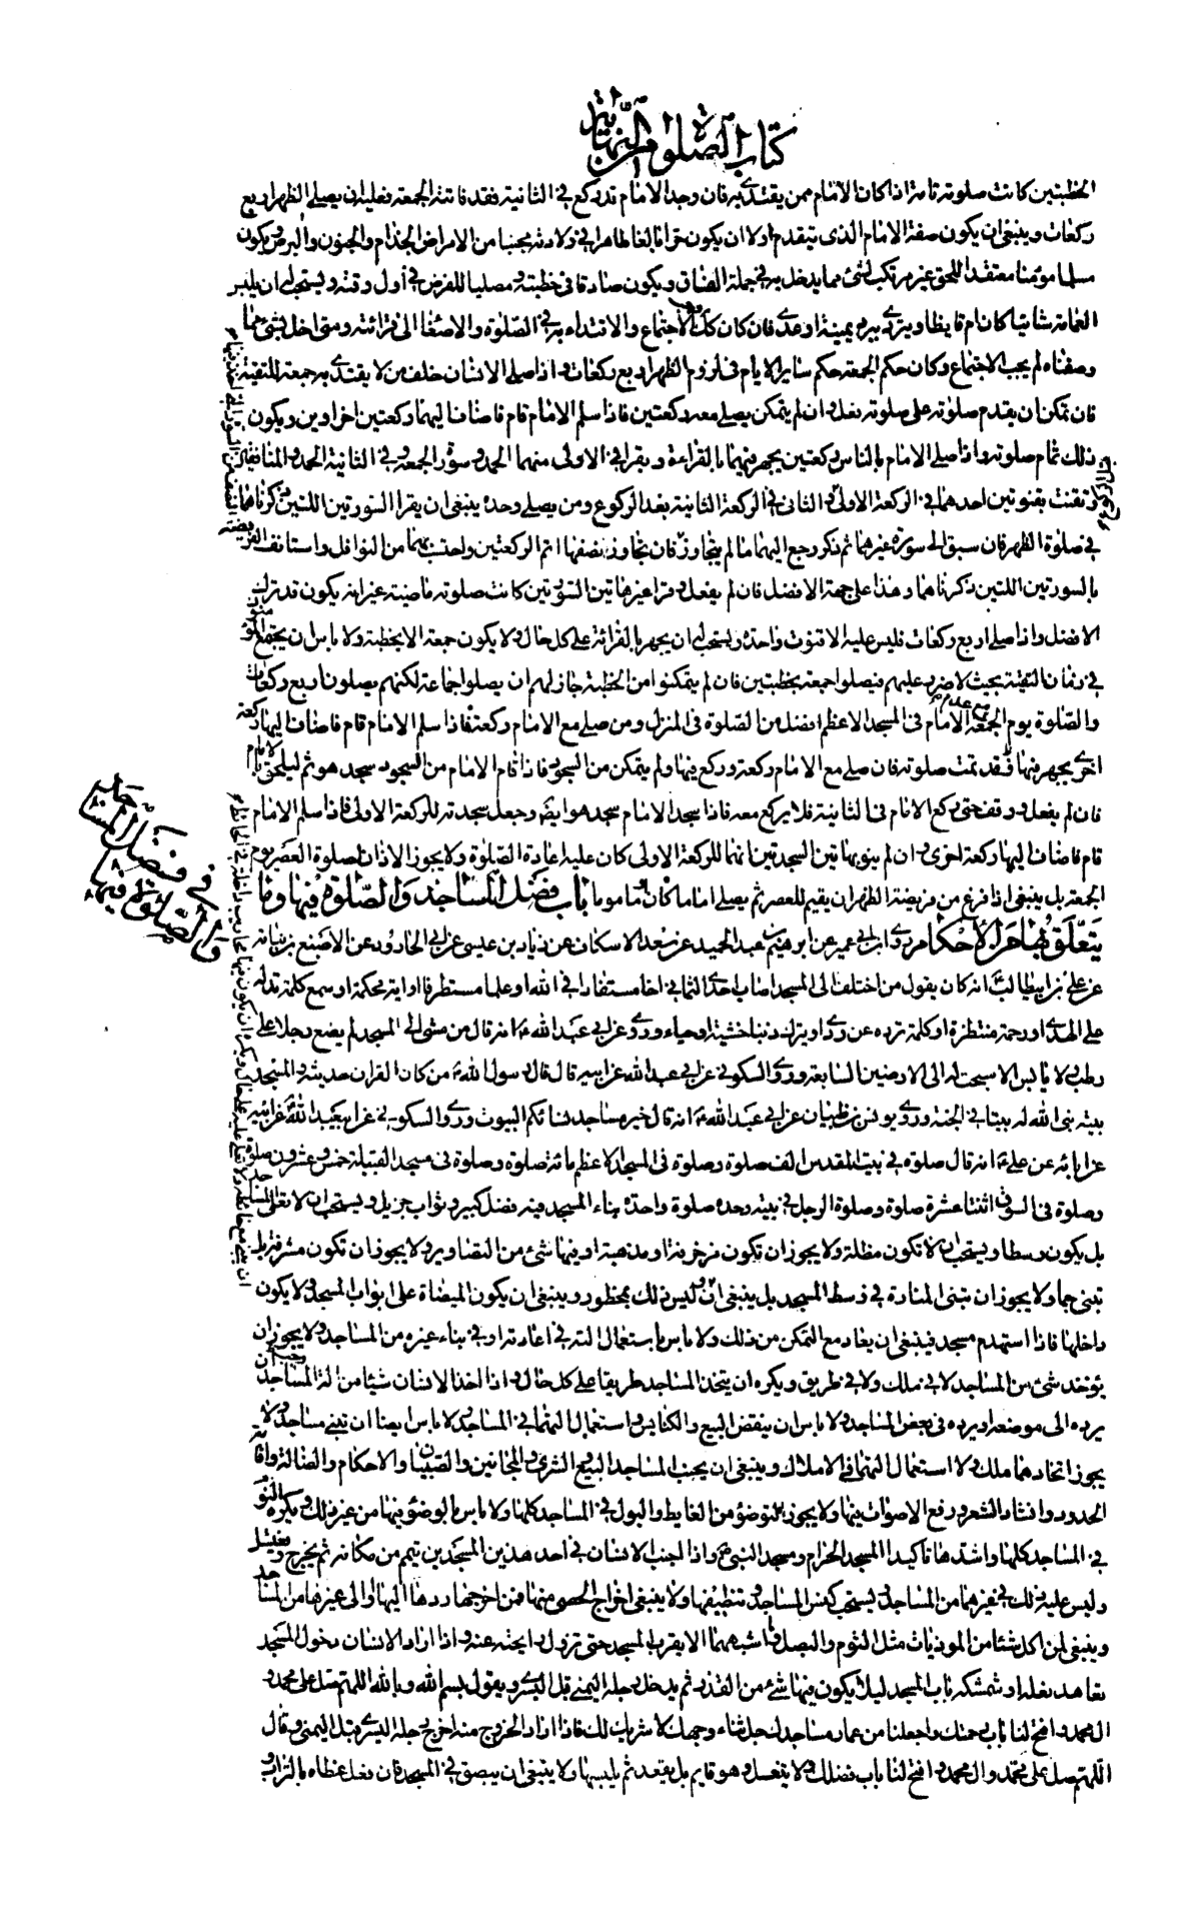 كتاب الصلوة من النهاية
الخطبتين كانت صلوته تامة اذا كان الامام ممن يقتدى به فان وجد الامام قد ركع فى الثانية فقد فاتته الجمعة فعليه ان يصلى الظهر اربع
ركعات وينبغى ان يكون صفة الامام الذى يتقدم اولا ان يكون حرا بالغا طاهرا فى ولادته مجنبا من الامراض الجذام والجنون والبرص ويكون
مسلما مؤمنا معتقدا للحق غير مرتكب لشئ مما يدخل به فى جملة الفساق ويكون صادقا فى خطبته ومصليا للفرض فى اول وقته ويستحب له ان يلبس
العمامة شاتيا كان ام قايظا ويتردى ببرد يمنية او عدنى فان كان كك وجب الاجتماع والاقتداء به فى الصلوة والاصغاء الى قرائته ومتى اخل بشئ مما
وصفناه لم يجب الاجتماع وكان حكم الجمعة حكم ساير الايام فى لزوم الظهر اربع ركعات واذا صلى الانسان خلف من لا يقتدى به جمعة للتقية
فان تمكن ان يقدم صلوته على صلوته فعل وان لم يتمكن يصلى معه ركعتين فاذا سلم الامام قام فاضاف اليهما ركعتين اخراوين ويكون
ذلك تمام صلوته واذا صلى الامام بالناس ركعتين يجهر فيهما بالقراءة ويقرا فى الاولى منهما الحمد وسورة الجمعة وفى الثانية الحمد والمنافقين
ويقنت بقنوتين احدهما فى الركعة الاولى والثانى فى الركعة الثانية بعد الركوع ومن يصلى وحده ينبغى ان يقرا السورتين اللتين ذكرناهما
فى صلوة الظهر فان سبق الى سورة غيرهما ثم ذكر رجع اليهما ما لم يتجاوز فان تجاوز نصفها اتم الركعتين واحتسب بهما من النوافل واستانف الفريضة
بالسورتين اللتين ذكرناهما وهذا على جهة الافضل فان لم يفعل وقرا غير هاتين السورتين كانت صلوته ماضية غير انه يكون قد ترك
الافضل واذا صلى اربع ركعات فليس عليه الا قنوت واحد ويستحب له ان يجهر بالقرائة على كل حال ولا يكون جمعة الا بخطبة ولا باس ان يجتمع المؤمنون
فى زمان التقية بحيث لا ضرر عليهم فيصلوا جمعة بخطبتين فان لم يتمكنوا من الخطبة جاز لهم ان يصلوا جماعة لكنهم يصلون اربع ركعات
والصلوة يوم الجمعة مع عدم الامام فى المسجد الاعظم افضل من الصلوة فى المنزل ومن صلى مع الامام ركعة فاذا سلم الامام قام فاضاف اليها ركعة
اخرى يجهر فيها وقد تمت صلوته فان صلى مع الامام ركعة وركع فيها ولم يتمكن من السجود فاذا قام الامام من السجود سجد هو ثم ليلحق بالامام
فان لم يفعل ووقف حتى ركع الامام فى الثانية فلا يركع معه فاذا سجد الامام سجد هو ايضا وجعل سجدتيه للركعة الاولى فاذا سلم الامام
قام فاضاف اليها ركعة اخرى وان لم ينو بهاتين السجدتين انهما للركعة الاولى كان عليه اعادة الصلوة ولا يجوز الاذان لصلوة العصر يوم
الجمعة بل ينبغى اذا فرغ من فريضة الظهر ان يقيم للعصر ثم يصلى اماما كان او ماموما باب فضل المساجد والصلوة فيها وما
يتعلق بها من الاحكام روى ابن ابى عمير عن ابرهيم بن عبد الحميد عن سعد الاسكاف عن زياد بن عيسى عن ابى الجارود عن الاصبغ بن نباتة
عن على بن ابيطالب انه كان يقول من اختلف الى المسجد اصاب احدى الثمانى اخا مستفادا فى الله او علما مستطرفا او اية محكمة او سمع كلمة تدله
على الهدى او رحمة منتظرة او كلمة ترده عن ردى او يترك ذنبا خشية او حياء وروى عن ابى عبد الله انه قال من مشى الى المسجد لم يضع رجلا على
رطب ولا يابس الا سبحت له الى الارضين السابعة وروى السكونى عن ابى عبد الله عن ابيه قال قال رسول الله من كان القران حديثه والمسجد
بيته بنى الله له بيتا فى الجنة وروى يونس بن ظبيان عن ابى عبد الله انه قال خير مساجد نسائكم البيوت وروى السكونى عن ابيعبد الله عن ابيه
عن ابائه عن على انه قال صلوة فى بيت المقدس الف صلوة وصلوة فى المسجد الاعظم مائة صلوة وصلوة فى مسجد القبيلة خمس وعشرون صلوة
وصلوة فى السوق اثنتا عشرة صلوة وصلوة الرجل فى بيته وحده صلوة واحدة بناء المسجد فيه فضل كبير وثواب جزيل ويستحب ان لا تعلى المساجد
بل يكون وسطا ويستحب ان لا تكون مظللة ولا يجوز ان تكون مزخرفة او مذهبة او فيها شئ من التصاوير ولا يجوز ان تكون مشرفة بل
تبنى جما ولا يجوز ان تبنى المنارة فى وسط المسجد بل ينبغى ان وليس ذلك بمحظور وينبغى ان يكون الميضاة على ابواب المسجد ولا يكون
داخلها فاذا استهدم مسجد فينبغى ان يعاد مع التمكن من ذلك ولا باس باستعمال الته فى اعادته او فى بناء غيره من المساجد ولا يجوز ان
يؤخذ شئ من المساجد لا فى ملك ولا فى طريق ويكره ان يتخذ المساجد طريقا على كل حال واذا اخذ الانسان شيئا من الة المساجد وجب ان
يرده الى موضعه او يرده فى بعض المساجد ولا باس ان ينقض البيع والكنايس واستعمال التهما فى المساجد ولا باس ايضا ان تبنى مساجد ولا
يجوز اتخاذهما ملكا ولا استعمال التهما فى الاملاك وينبغى ان يجنب المساجد البيع والشرى والمجانين والصبيان والاحكام والضالة واقامة
الحدود وانشاد الشعر ورفع الاصوات فيها ولا يجوز التوضؤ من الغايط والبول فى المساجد كلها ولا باس بالوضوء فيها من غير ذلك ويكره النوم
فى المساجد كلها واشدها تاكيدا المسجد الحرام ومسجد النبى واذا اجنب الانسان فى احد هذين المسجدين تيمم من مكانه ثم يخرج ويغتسل
وليس عليه ذلك فى غيرهما من المساجد ويستحب كنس المساجد وتنظيفها ولا ينبغى اخراج الحصى منها فمن اخرجها ردها اليها او الى غيرها من المساجد
وينبغى لمن اكل شيئا من الموذيات مثل الثوم والبصل وما اشبههما الا يقرب المسجد حتى تزول رايحته عنه واذا اراد الانسان دخول المسجد
تعاهد نعله او شمشكه باب المسجد ليلا يكون فيها شئ من القذر ثم يدخل رجله اليمنى قبل اليسرى ويقول بسم الله وبالله اللهم صل على محمد و
ال محمد وافتح لنا باب رحمتك واجعلنا من عمار مساجدك جل ثناء وجهك لا شريك لك فاذا اراد الخروج منه اخرج رجله اليسرى قبل اليمنى وقال
اللهم صل على محمد وال محمد وافتح لنا باب فضلك ولا يتنعل وهو قايم بل يقعد ثم يلبسها ولا ينبغى ان يبصق فى المسجد فان فعل غطاه بالتراب
فى فضل المساجد
والصلوة فيها